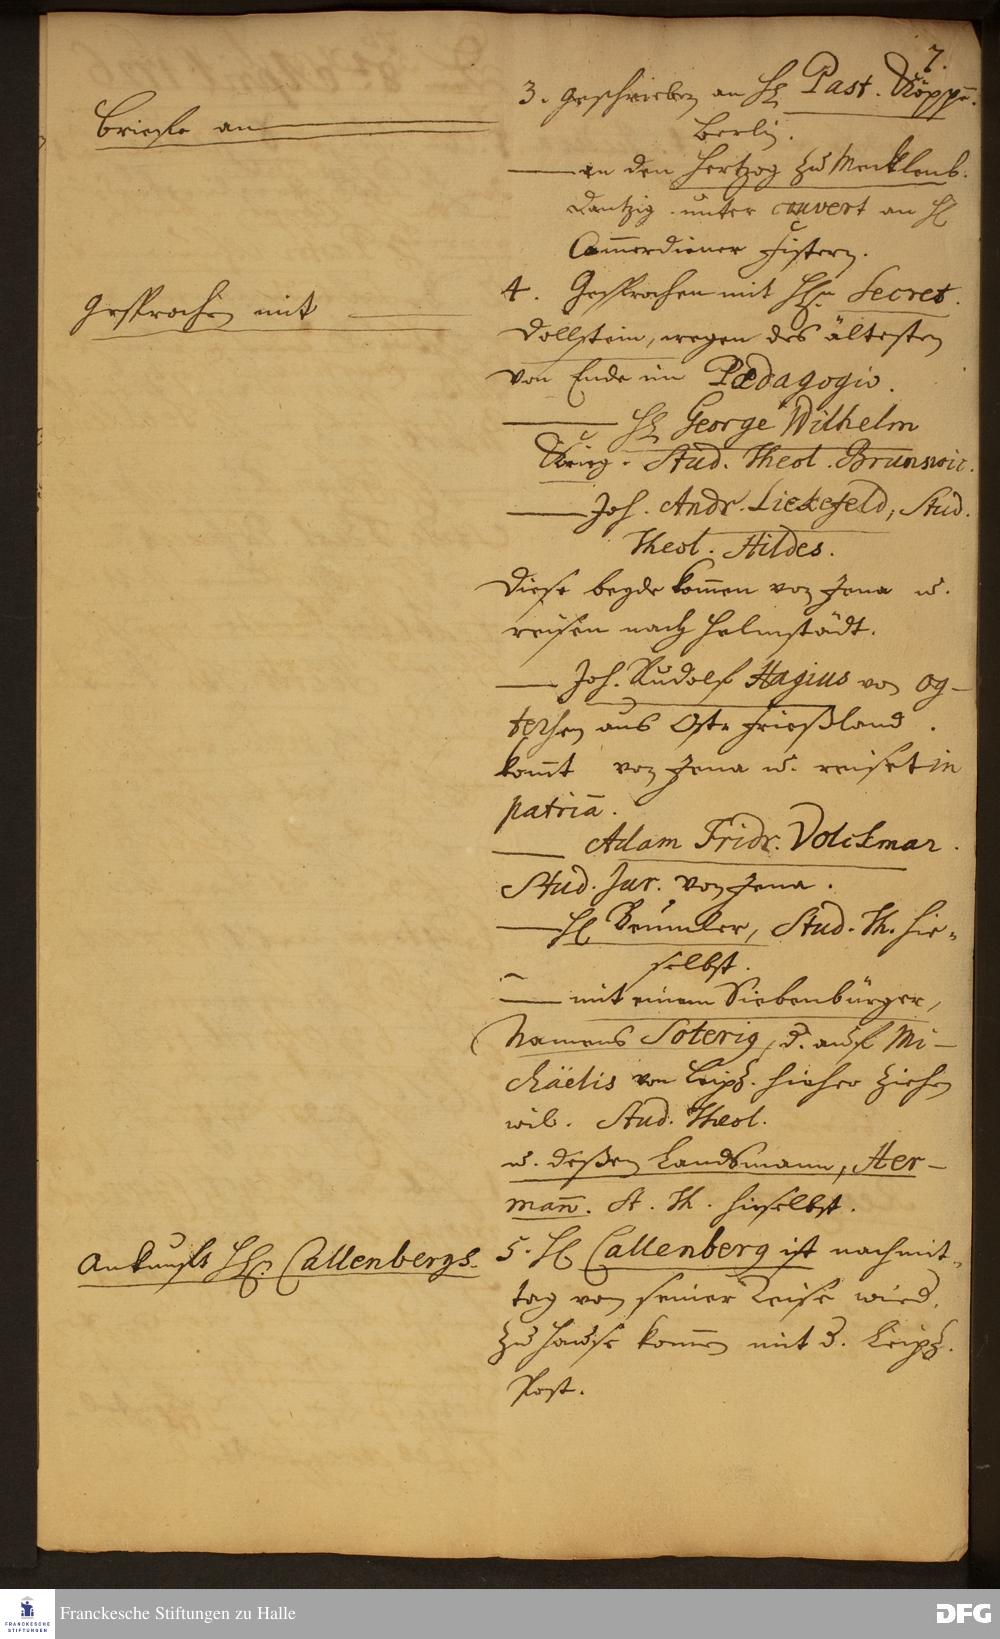 7.
3. Geschrieben an H. Past. Köppen.
Briefe an
Berlin.
an den Hertzog zu Mecklenb.
Dantzig unter couvert an H.
Cammerdiener Fistern.
4. Gesprochen mit HEn Secret.
Gesprochen mit
Dollstein, wegen des ältesten
von Ende im Pædagogio.
H. George Wilhelm
Krieg. Stud. Theol. Brunswic.
Joh. Andr. Liekefeld, Stud.
Theol. Hildes.
Diese beyde kom̅en von Jena u.
reisen nach Helmstädt.
Joh. Rudolf Hagius von Og-
tersen aus Ost Frießland.
kom̅t von Jena u. reiset in
patriā.
Adam Fridr. Volckmar.
Stud. Jur. von Jena.
H. Beumler, Stud. Th. hie-
selbst.
mit einem Siebenbürger,
Namens Soterig, d. auf Mi-
chäelis von Leipz. hieher ziehen
wil. Stud. Theol.
u. deßen Landsmann, Her-
man̅. St. Th. hieselbst.
Ankunft HEn Callenbergs.
5. H. Callenberg ist nachmit-
tag von seiner Reise wied.
zu Hause kom̅en mit d. Leipz.
Post.
Franckesche Stiftungen zu Halle
FRANCKESCHE
STIFTUNGEN
DFG